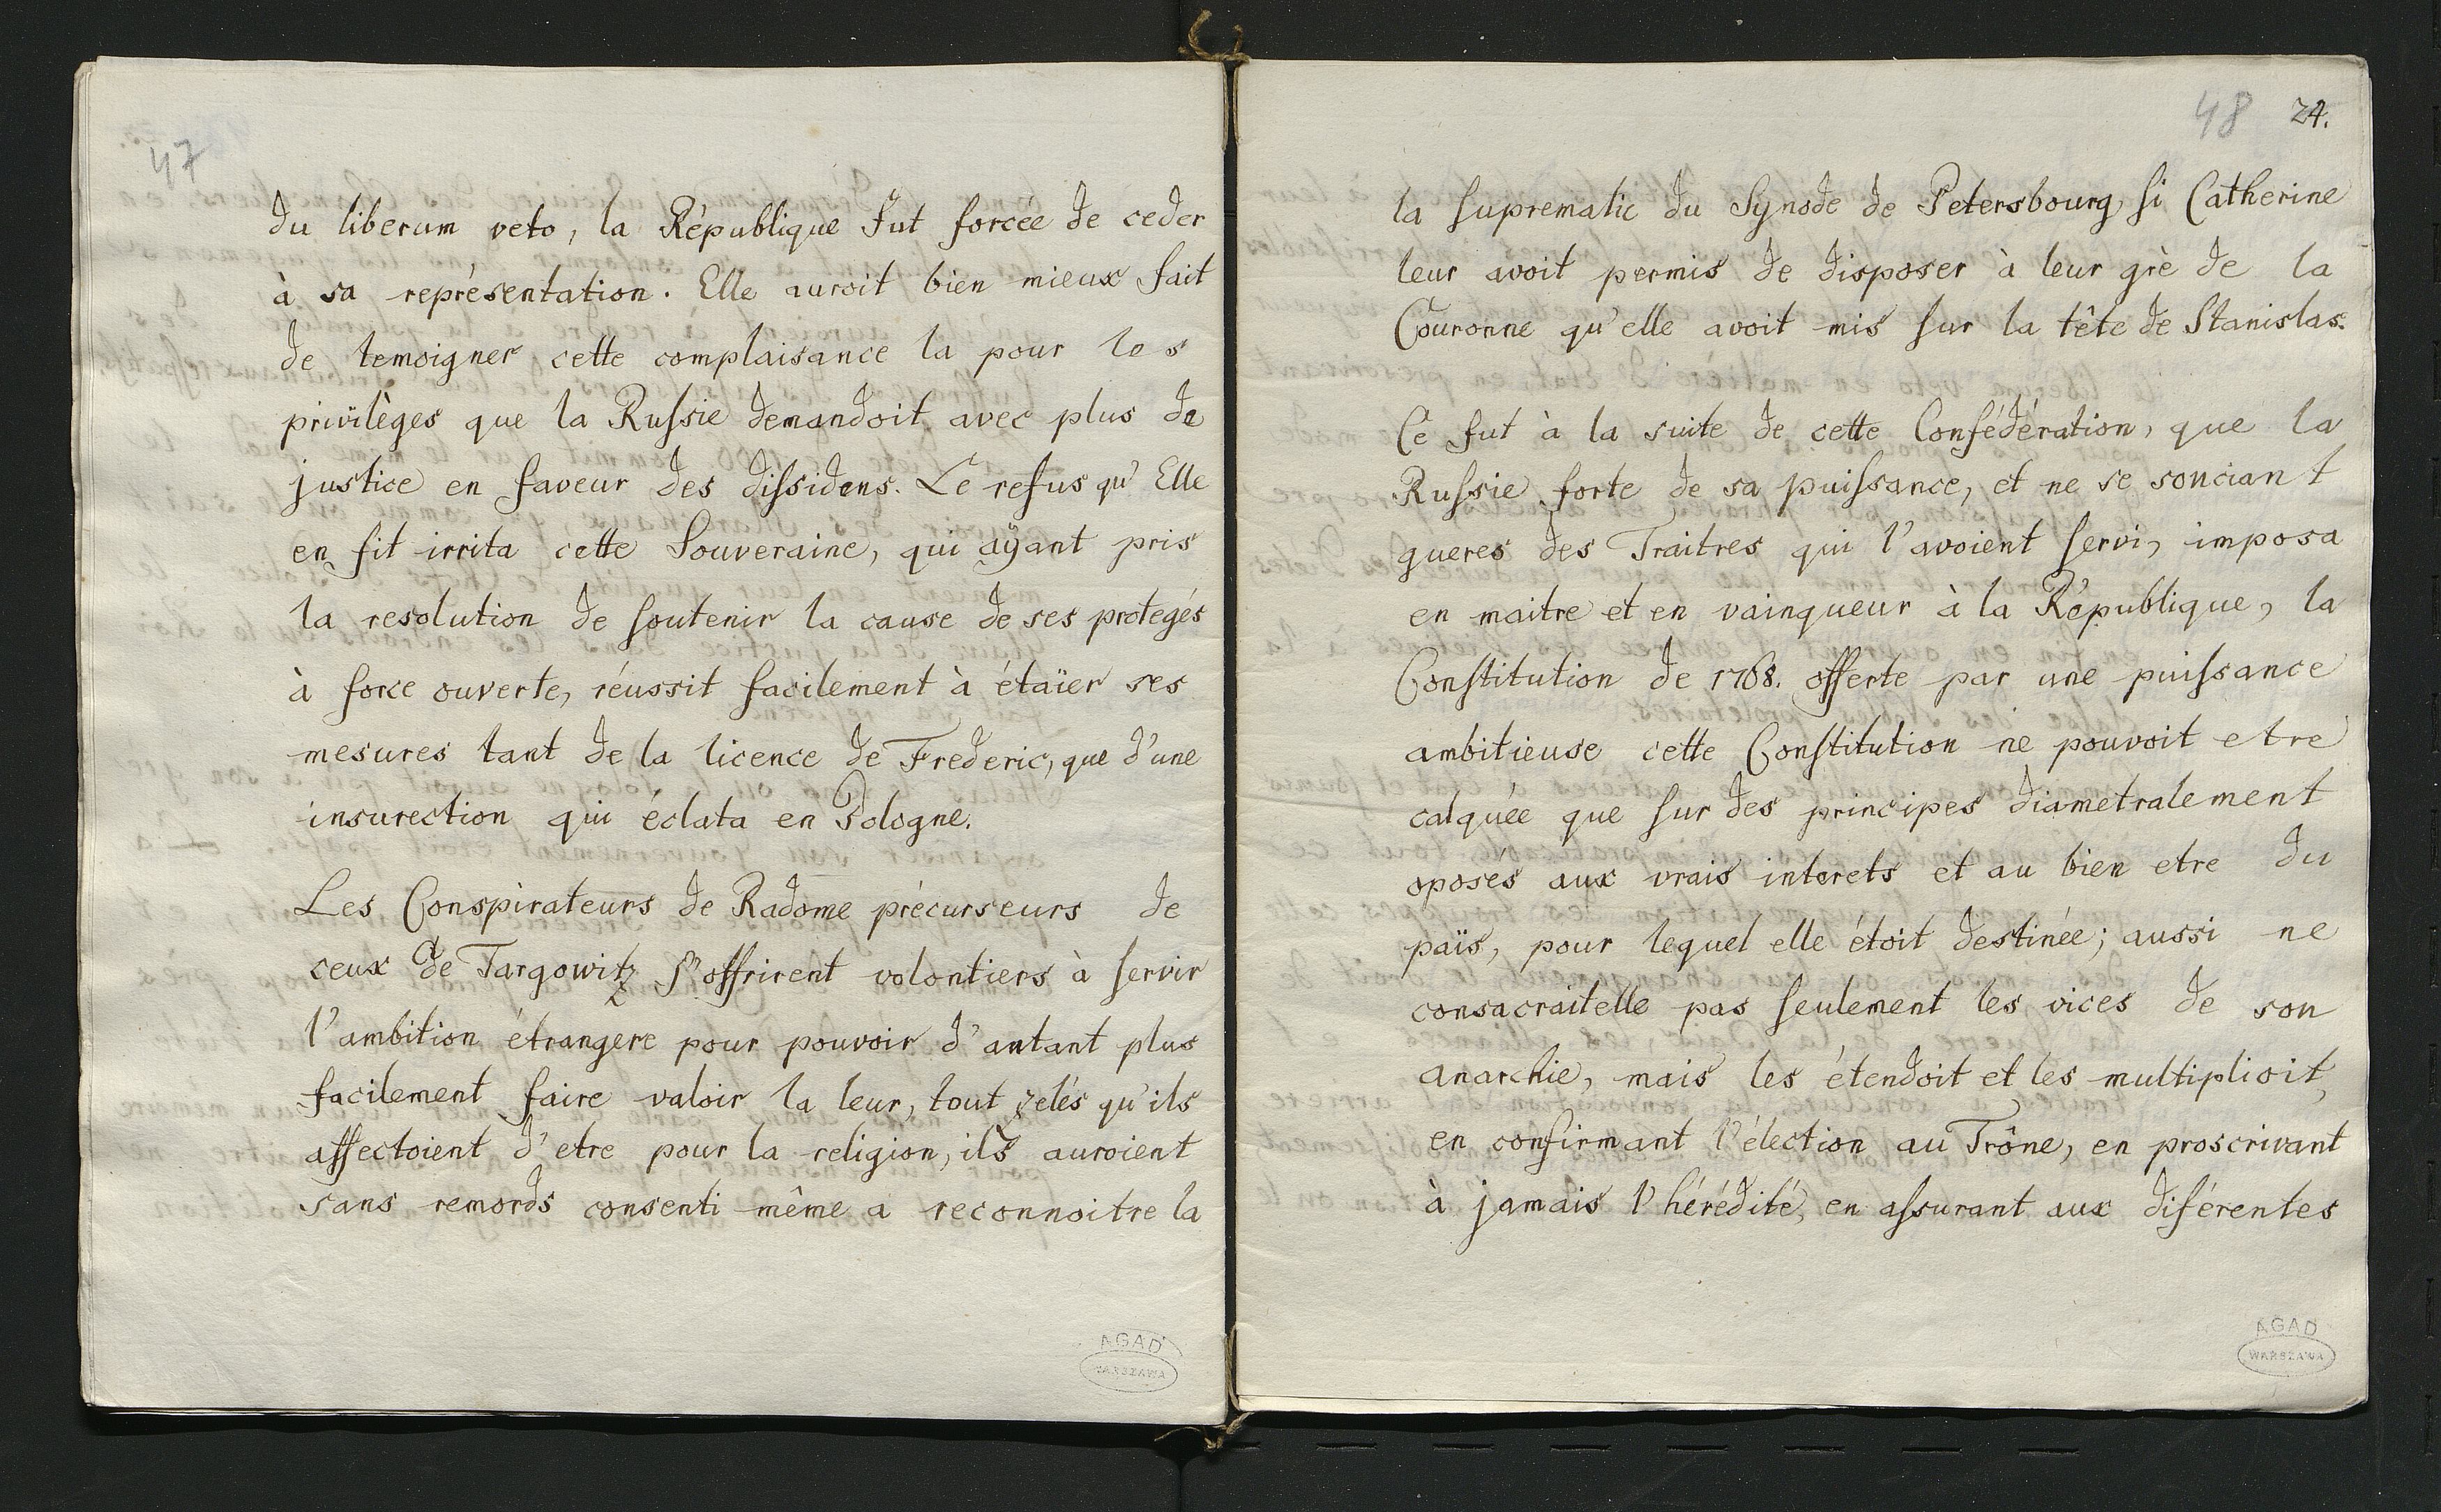 47
du liberum veto, la République fut forcée de ceder
à sa représentation. Elle auroit bien mieux fait
de temoigner cette complaisance la pour les
privilèges que la Russie demandoit avec plus de
justice en faveur des dissidens. Le refus qu'Elle
en fit irrita cette Souveraine, qui aÿant pris
la resolution de soutenir la cause de ses protegés
à force ouverte, réussit facilement à étaïer ses
mesures tant de la licence de Frederic, que d'une
insurection qui éclata en Pologne.
Les Conspirateurs de Radome précurseurs de
ceux de Targowitz s'offrirent volontiers à servir
l'ambition étrangere pour pouvoir d'autant plus
facilement faire valoir la leur, tout zelés qu'ils
affectoient d'etre pour la religion, ils auroient
sans remords consenti même a reconnoitre la
AGAD
WARSZAWA
48 24.
la suprematic du Synode de Petersbourg, si Catherine
leur avoit permis de disposer à leur grè de la
Couronne qu'elle avoit mis sur la tête de Stanislas.
Ce fut à la suite de cette Confédération, que la
Russie forte de sa puissance, et ne se souciant
gueres des Traitres qui l'avoient servi, imposa
en maitre et en vainqueur à la République, la
Constitution de 1768. offerte par une puissance
ambitieuse cette Constitution ne pouvoit etre
calquée que sur des principes diametralement
oposés aux vrais interets et au bien etre du
païs, pour lequel elle étoit destinée; aussi ne
consacraitelle pas seulement les vices de son
anarchie, mais les étendoit et les multiplioit,
en confirmant l'élection au Trône, en proscrivant
à jamais l'hérédité, en assurant aux diférentes
AGAD
WARSZAWA